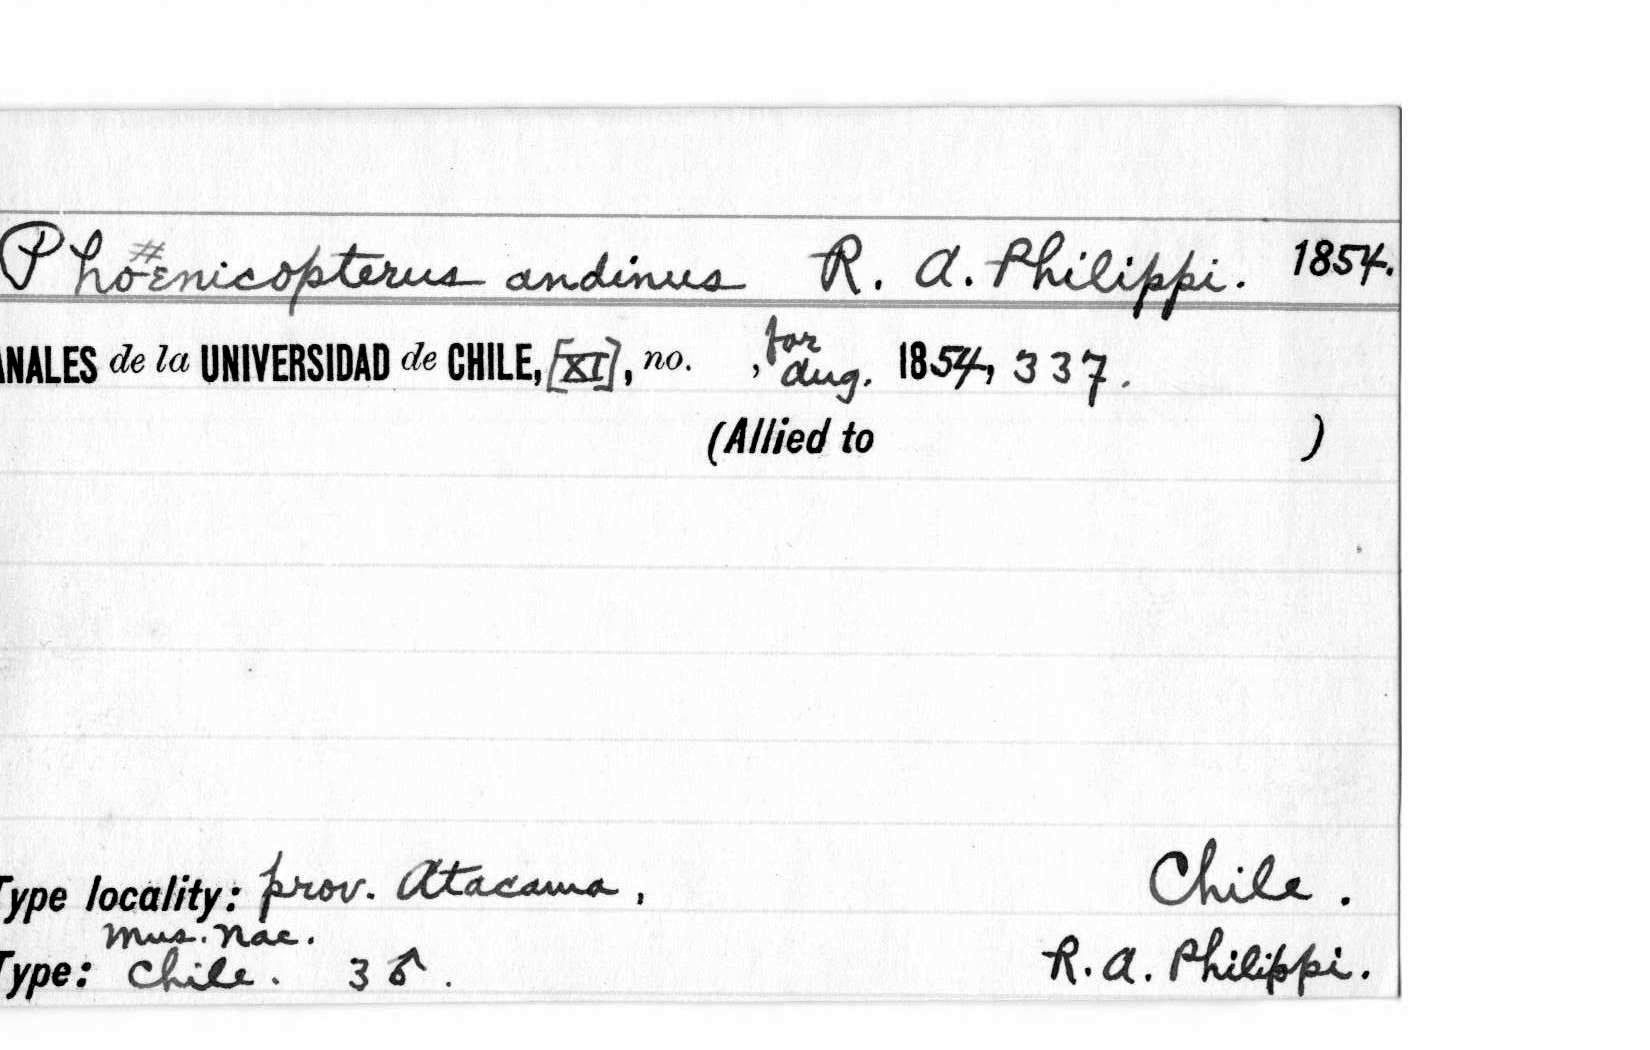 Phoenicopterus andinus R. A. Philippi. 1854.
ANALES de la UNIVERSIDAD de CHILE, [XI], no. , for Aug. 1854, 337.
(Allied to )
Type locality: prov. Atacama, Chile.
Mus. Nac.
Type: Chile. 3 ♂. R. A. Philippi.